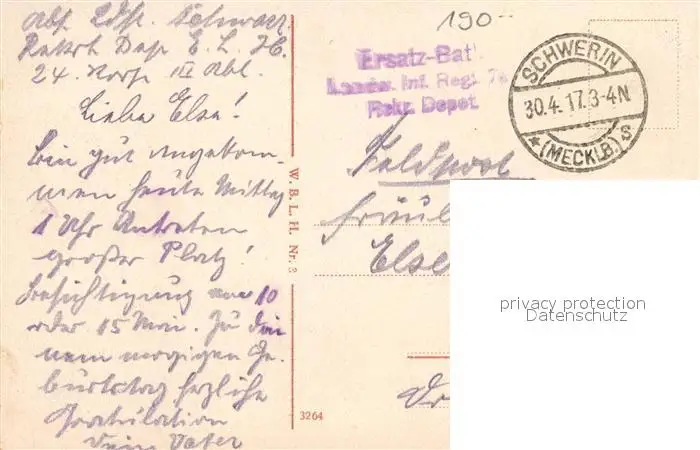 Abs. Ldst. Schwarz
Rekrt Dep E. L. 76.
24. Korp III Abl.
Liebe Else!
bin gut angekom-
men heute Mittag
1 Uhr Antreten
großer Platz!
Besichtigung 10
oder 15 Mai. Zu dei
nem morgigen Ge-
burtstag herzliche
Gratulation
Dein Vater
W. B. L. H. Nr. 3
3264
190-
Ersatz-Bat
Landw. Inf. Regt. 76
Rekr. Depot.
SCHWERIN
30.4.17.3-4N
* (MECKLB) S
Feldpost
Fräul
Else
privacy protection
Datenschutz